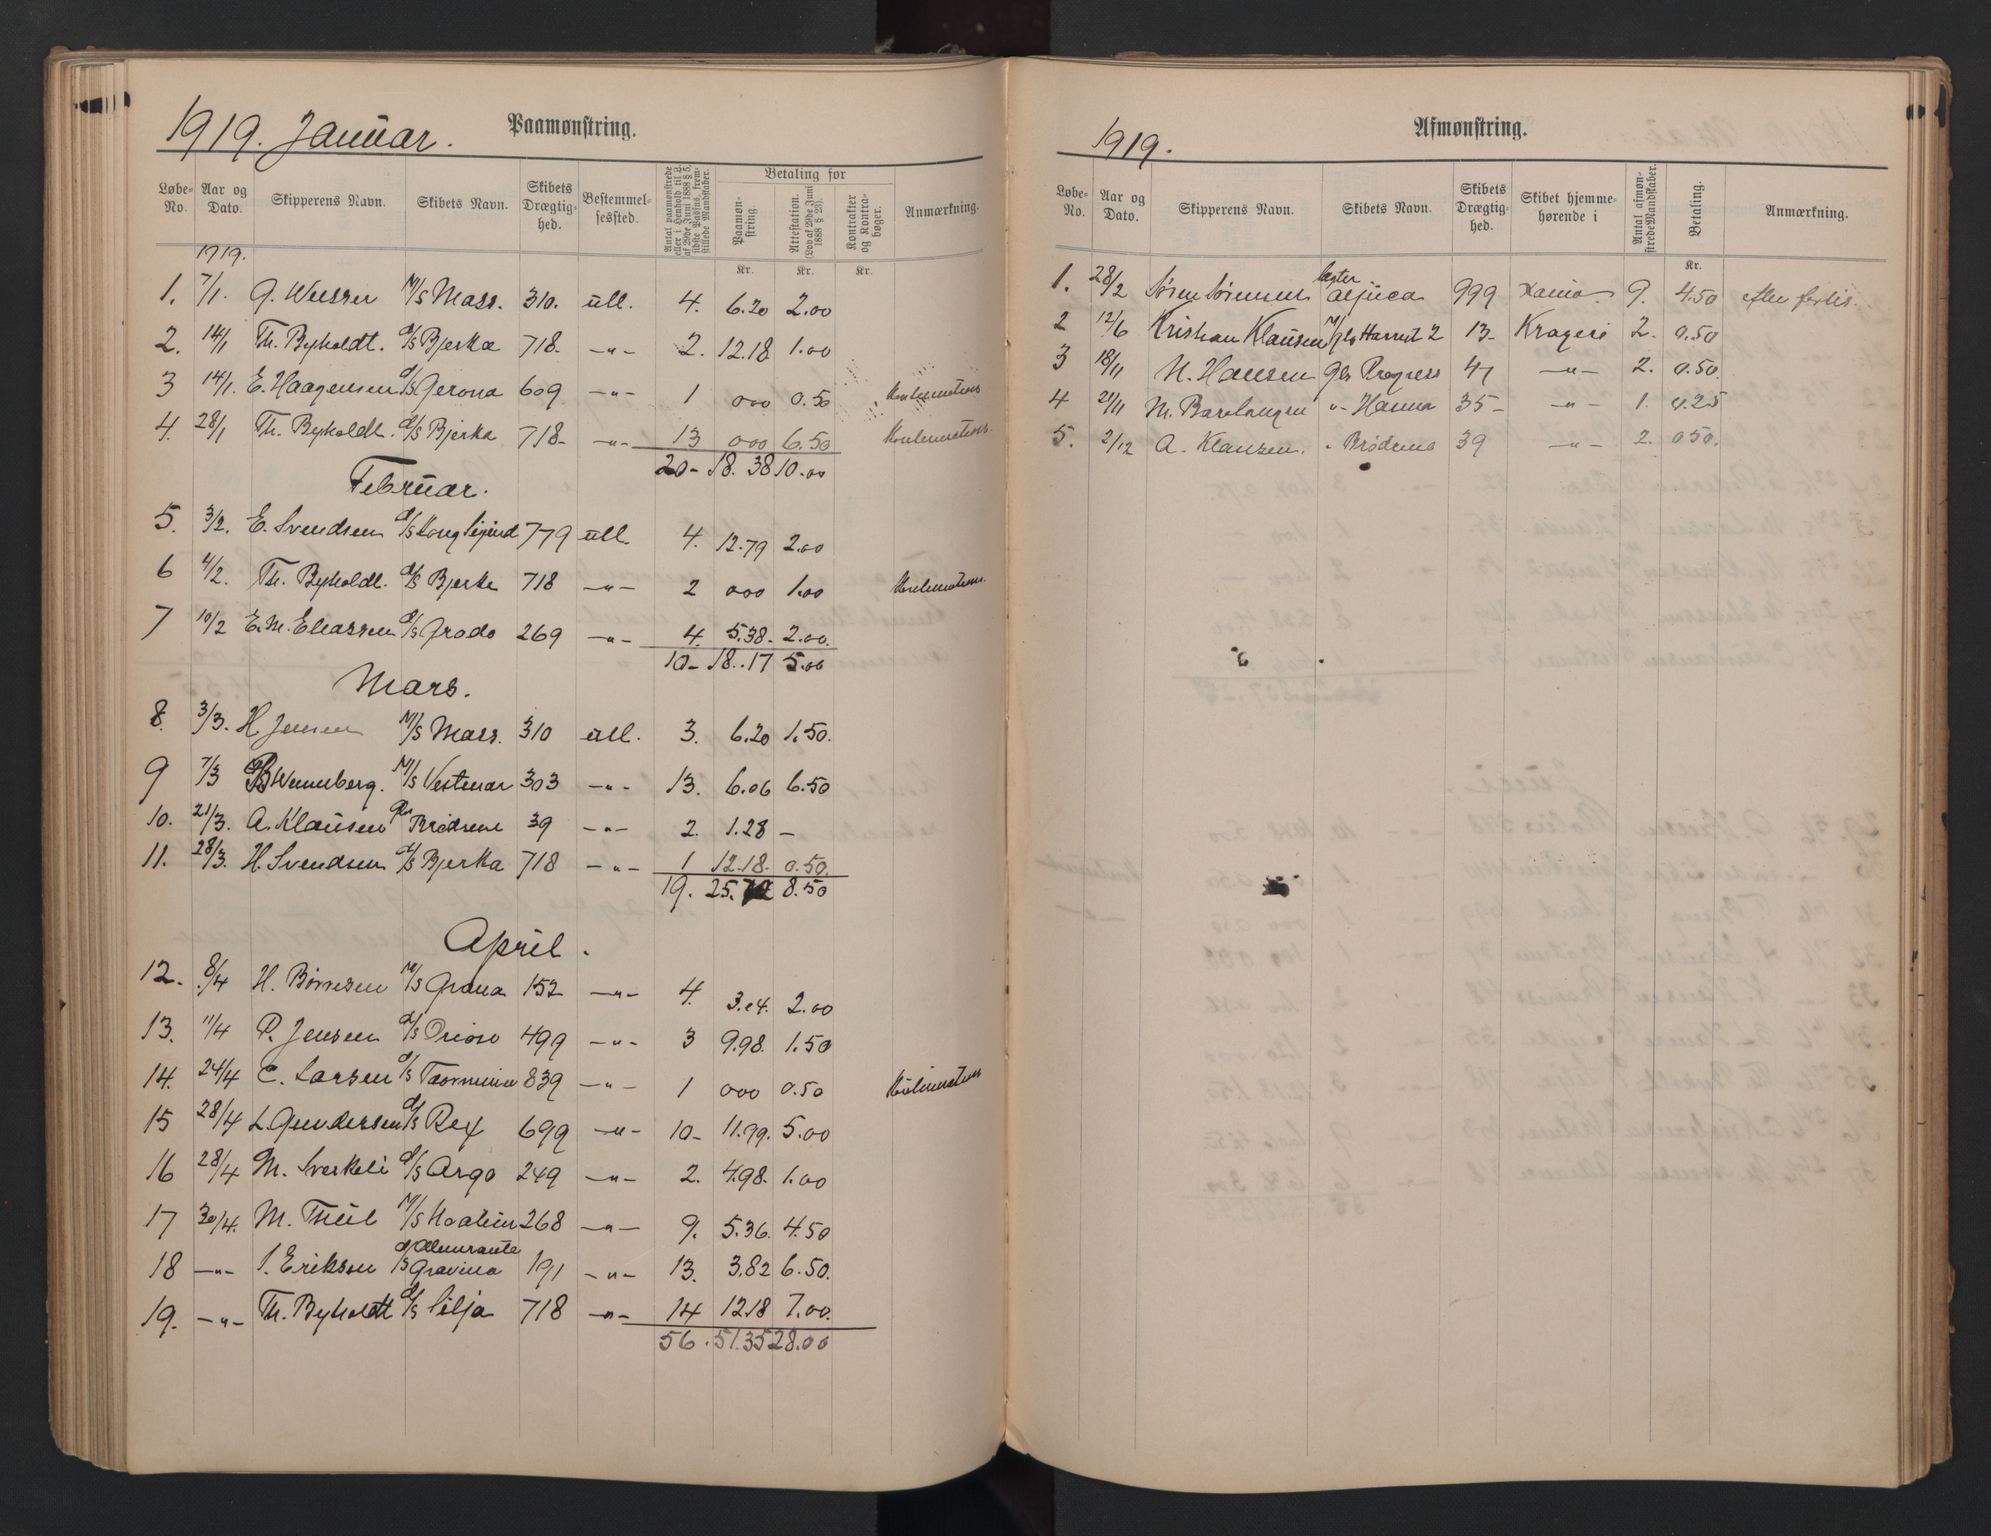 1919. Januar. Paamønstring.
Løbe-No. Aar og Dato. Skipperens Navn. Skibets Navn. Skibets Drægtighed. Bestemmelsessted. Antal paamønstrede eller i Henhold til L. af 29de Juni 1888 § 5, sidste Passus, fremstillede Mandskaber. Betaling for Paamønstring Attestation. (Lov af 29de Juni 1888 § 23). Kontrakter og Kontrabøger. Anmærkning.
1919. Kr. Kr. Kr.
1. 7/1. M/S Mass. 310. utl. 4. 6.20 2.00
2. 14/1 Th. Byholdt. d/S Bjerka 718. -"- 2. 12.18 1.00
3 14/1. E. Haagensen d/S Gerona 609 -"- 1 000 0.50
4. 28/1 Th. Byholdt. d/S Bjerka 718- -"- 13 000 6.50
20- 18.38 10.00
Februar.
5. 3/2. E. Svendsen d/S 779 utl. 4. 12.79 2.00
6 4/2. Th. Byholdt. d/S Bjerka 718 -"- 2 000 1.00
7 10/2 E. M. Eliassen d/S Grado 269 -"- 4. 5.38- 2.00.
10- 18.17 5.00
Mars.
8. 3/3. H Jensen M/S Mass. 310 utl. 3. 6.20 1.50.
9 7/3 Wennberg. M/S Vestenar 303 -"- 13. 6.06 6.50
10. 21/3. A. Klausen Brødrene 39 -"- 2. 1.28 -
11. 28/3. H. Svendsen d/S Bjerka 718 -"- 1 12.18. 0.50.
19. 25. 8.50
April.
12. 8/4 H. Børresen M/S Grana 152 -"- 4. 3.04. 2.00
13. 11/4 P. Jensen d/S 499 -"- 3 9.98. 1.50
14. 24/4 C. Larsen d/S Taormina 839 -"- 1 000 0.50
15 28/4 L. Gundersen d/S Rex 699 -"- 10- 11.99. 5.00
16 28/4 M. Sverkeli d/S Argo 249 -"- 2. 4.98. 1.00
17 30/4. M. Thiil M/S 268 -"- 9. 5.36. 4.50
18 -"- Eriksson d/S Almirante Gravina 191 -"- 13. 3.82 6.50.
19. -"- Th. Byholdt d/S Silja 718 -"- 14 12.18 7.00.
56. 51.35 28.00
1919. Afmønstring.
Løbe-No. Aar og Dato. Skipperens Navn. Skibets Navn. Skibets Drægtighed. Skibet hjemmehørende i Antal afmønstrede Mandskaber. Betaling. Anmærkning.
Kr.
1. 28/2 Søren Sørensen 999 9. 4.50 efter forlis.
2 12/6 Kristian Klausen 13- Kragerø 2. 0.50
3 18/11 N. Hansen Progress 47 -"- 2. 0.50.
4 21/11 M. -"- Hanna 35- -"- 1. 0.25
5. 2/12 A. Klausen. " Brødrene 39 -"- 2. 050.